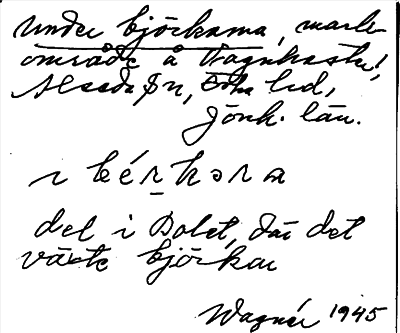 under björkarna, mark-
område å Vagnhester,
Alseda sn, Östra hd,
Jönk. län.
del i Bolet, där det
växte björkar
Wagnér 1945